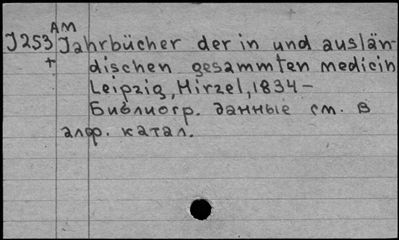 AM
J253 Jahrbücher der in und auslän-
+ dischen gesammten medicin
Leipzig, Hirzel, 1834 –
Библиогр. данные см. в
алф. катал.